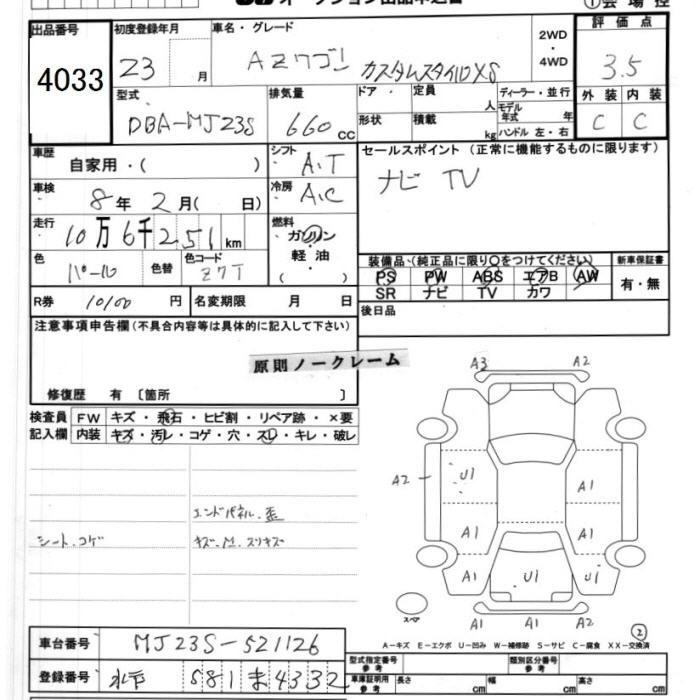 オークション出品申込書
①会場控
出品番号 初度登録年月 車名・グレード 2WD・4WD 評価点
4033 23 月 AZワゴン カスタムスタイルXS 3.5
型式 排気量 ドア・ 定員 人 ディーラー・並行 外装 内装
DBA-MJ23S 660 CC 形状 積載 kg モデル年式 年 ハンドル 左・右 C C
車歴 自家用・( ) シフト A.T セールスポイント (正常に機能するものに限ります)
車検 8年 2月( 日) 冷房 A.C ナビ TV
走行 10万6千251km 燃料 ガソリン・軽油・( )
色 パール 色替 色コード Z7T
装備品(純正品に限り○をつけてください) 新車保証書
PS PW ABS エアB AW 有・無
SR ナビ TV カワ
R券 10100 円 名変期限 月 日 後日品
注意事項申告欄(不具合内容等は具体的に記入して下さい)
原則ノークレーム
修復歴 有 〔箇所 〕
検査員 FW キズ・飛石・ヒビ割・リペア跡・×要
記入欄 内装 キズ・汚レ・コゲ・穴・スレ・キレ・破レ
エンドパネル.歪
シート.コゲ キズ.M.スリキズ
A3 A2
A2 U1 A1
A1 A1
A1 U1 U1
A1 A2
スペア
②
A-キズ E-エクボ U-凹み W-補修跡 S-サビ C-腐食 XX-交換済
車台番号 MJ23S-521126
型式指定番号 参考 類別区分番号 参考
登録番号 水戸 581 ま 4332
車庫証明用 参考 長さ cm 幅 cm 高さ cm